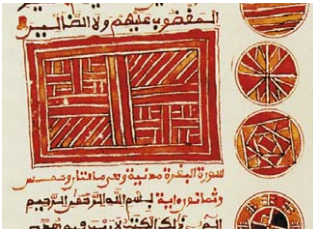 المغضوب عليهم ولا الضالين
سورة البقرة مدنية وهي مائتان وخمس
وثمانون اية بسم الله الرحمن الرحيم
الم ذلك الكتب لا ريب فيه هدى